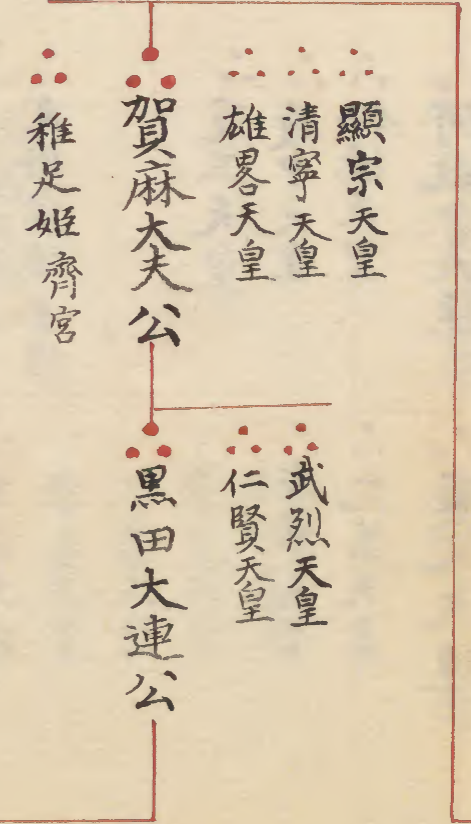 顯宗天皇
清寧天皇
雄畧天皇
賀麻大夫公
稚足姬齊宮
武烈天皇
仁賢天皇
黒田大連公